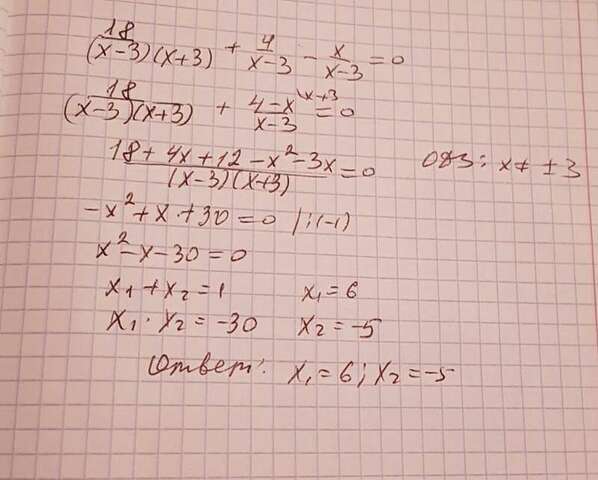 18/((x-3)(x+3)) + 4/(x-3) - x/(x-3) = 0
18/((x-3)(x+3)) + (4-x)/(x-3) \x+3 = 0
(18+4x+12-x²-3x)/((x-3)(x+3)) = 0 ОДЗ: x ≠ ±3
-x²+x+30=0 |:(-1)
x²-x-30=0
x₁+x₂=1 x₁=6
x₁·x₂=-30 x₂=-5
Ответ: x₁=6; x₂=-5